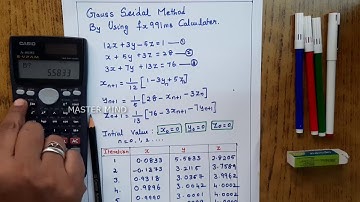 Gauss Seidal Method
By Using fx991ms Calculater.
12x+3y-5z=1 —①
x+5y+3z=28 —②
3x+7y+13z=76 —③
xn+1 = 1/12 [1-3yn+5zn]
yn+1 = 1/5 [28-xn+1-3zn]
zn+1 = 1/13 [76-3xn+1-7yn+1]
Intial Value: x₀=0 y₀=0 z₀=0
n=0,1,2,....
Iteration x y z
1. 0.0833 5.5833 2.8205
2. -0.1293 3.2117
3. 0.9318
4. 0.9896 3.0042 4.0002
CASIO
55833
MASTER MIND